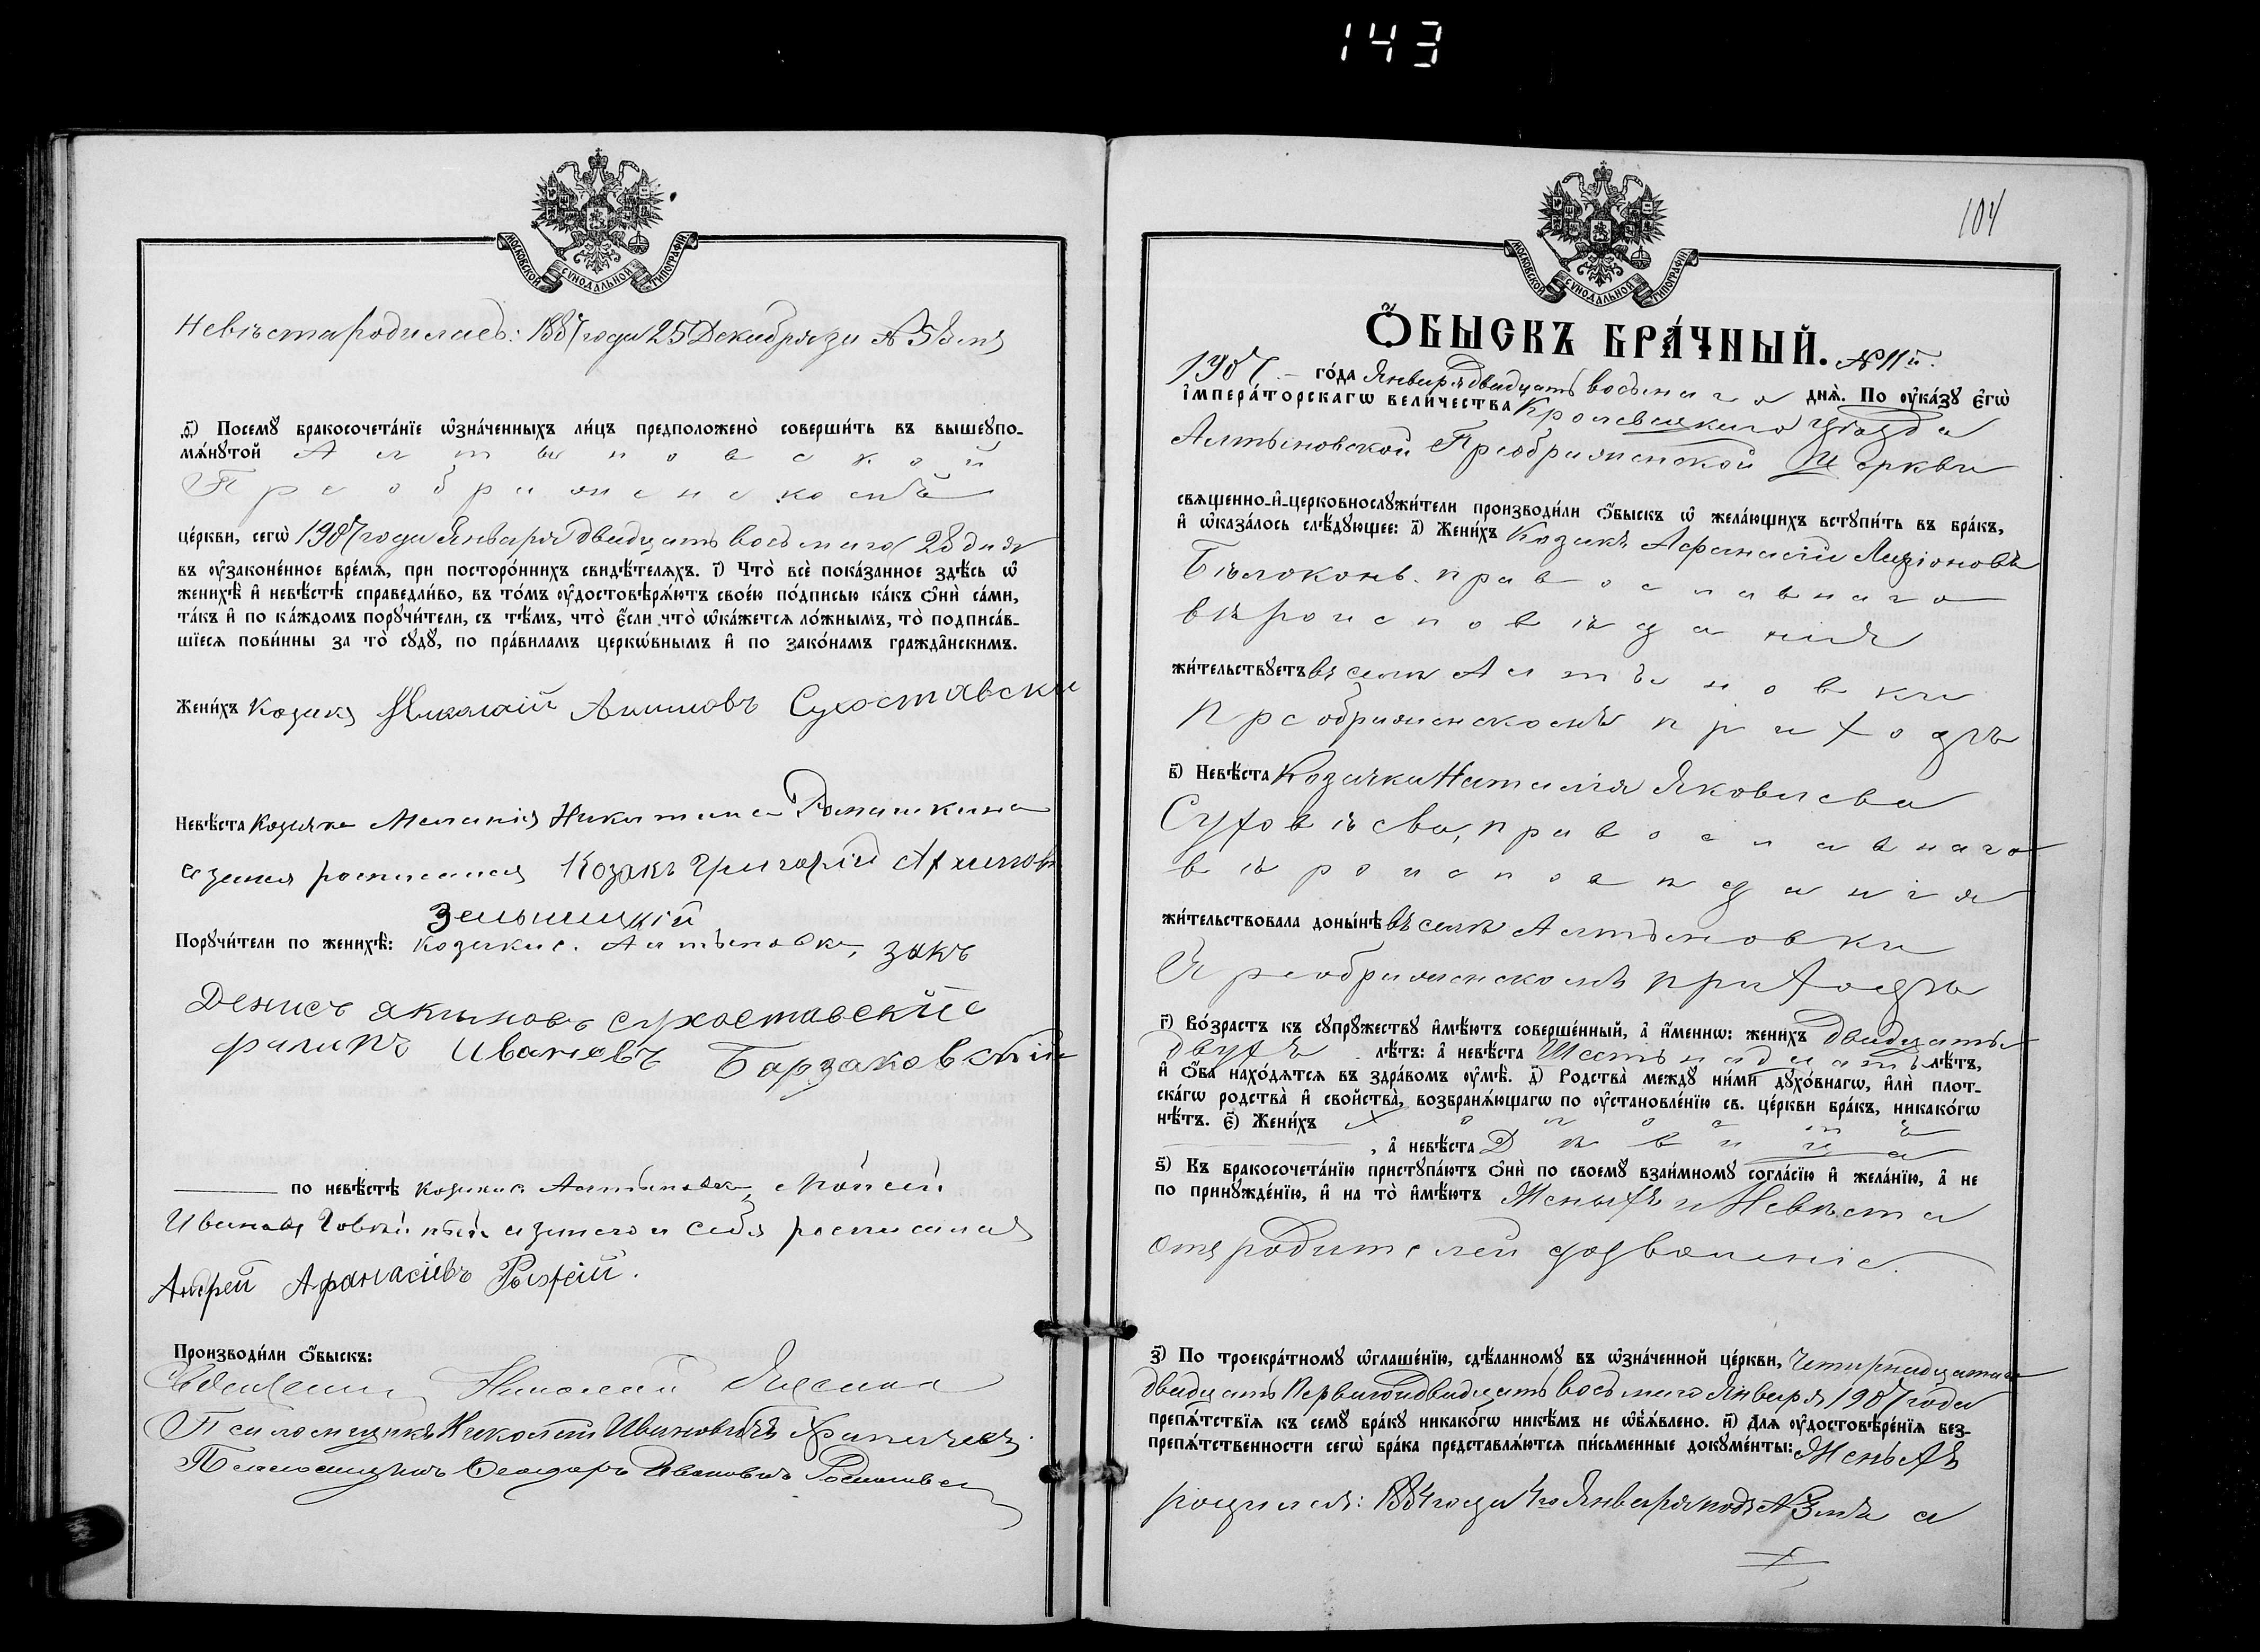 143
МОСКОВСКОЙ СѴНОДАЛЬНОЙ ТИПОГРАФІИ
Невѣста родилась: 1887 года 25 Декабря за № 5
ѳ҃) Посемꙋ бракосочета́нїе ѡ҆зна́ченныхъ ли́цъ предположено̀ соверши́ть въ вышеꙋпо-
мѧ́нꙋтой Алтыновской
Преображенской
це́ркви, сегѡ̀ 1907 года Января двадцать восьмаго 28 дня
въ ᲂу҆законе́нное вре́мѧ, при посторо́ннихъ свидѣ́телѧхъ. і҃) Что̀ всѐ пока́занное здѣ́сь ѡ҆
женихѣ̀ и҆ невѣ́стѣ справедли́во, въ то́мъ ᲂу҆достовѣрѧ́ютъ свое́ю по́дписью ка́къ ѻ҆нѝ са́ми,
та́къ и҆ по ка́ждомъ порꙋчи́тели, съ тѣ́мъ, что̀ є҆́сли что̀ ѡ҆ка́жетсѧ ло́жнымъ, то̀ подписа́в-
шїесѧ пови́нны за то̀ сꙋдꙋ̀, по пра́виламъ церкѡ́внымъ и҆ по зако́намъ гражда̑нскимъ.
Жени́хъ Козакъ Николай Акимовъ Сухоставски
Невѣ́ста Козачка Меланія Никитина Ромашкина
а за нея росписался Козакъ Григорій Архиповъ
Зельницкій
Порꙋчи́тели по женихѣ̀: козаки с. Алтыновки,
Денисъ Акимовъ Сухоставскій
Филипъ Ивановъ Барзаковскій
по невѣ́стѣ козаки с. Алтыновки, Мойсей
Ивановъ а за него и себя росписался
Андрей Афанасіевъ
Производи́ли ѻ҆́быскъ:
Священникъ Николай
Псаломщикъ Николай Ивановичъ
Псаломщикъ Ѳеодоръ Ивановичъ
104
МОСКОВСКОЙ СѴНОДАЛЬНОЙ ТИПОГРАФІИ
Ѻ҆́БЫСКЪ БРА́ЧНЫЙ. № 11й.
1907 го́да Января двадцать восьмаго днѧ̀. По ᲂу҆ка́зꙋ є҆гѡ̀
і҆мпера́торскагѡ вели́чества Кролевецкаго уѣзда
Алтыновской Преображенской Церкви
свѧщенно-и҆-церковнослꙋжи́тели производи́ли ѻ҆́быскъ ѡ҆ жела́ющихъ встꙋпи́ть въ бра́къ,
и҆ ѡ҆каза́лось слѣ́дꙋющее: а҃) Жени́хъ Козакъ Афанасій Ларіоновъ
Бѣлоконь православнаго
вѣроисповѣданія
жи́тельствꙋетъ въ селѣ Алтыновки
Преображенскомъ приходѣ
в҃) Невѣ́ста Козачка Наталія Яковлева
Суховѣева, православнаго
вѣроисповѣданія
жи́тельствовала доны́нѣ въ селѣ Алтыновки
Преображенскомъ приходѣ
г҃) Во́зрастъ къ сꙋпрꙋ́жествꙋ и҆мѣ́ютъ соверше́нный, а҆ и҆́меннѡ: жени́хъ двадцать
двухъ лѣ́тъ: а҆ невѣ́ста Шестьнадцать лѣ́тъ,
и҆ ѻ҆́ба нахо́дѧтсѧ въ здра́вомъ ᲂу҆мѣ̀. д҃) Родства̀ междꙋ̀ ни́ми дꙋхо́внагѡ, и҆лѝ плот-
ска́гѡ родства̀ и҆ сво́йства̀, возбранѧ́ющагѡ по ᲂу҆становле́нїю св. це́ркви бра́къ, никако́гѡ
нѣ́тъ. є҃) Жени́хъ холостъ
, а҆ невѣ́ста Дѣвица
ѕ҃) Къ бракосочета́нїю пристꙋпа́ютъ ѻ҆нѝ по своемꙋ̀ взаи́мномꙋ согла́сїю и҆ жела́нїю, а҆ не
по принꙋжде́нїю, и҆ на то̀ и҆мѣ́ютъ Женыхъ и Невѣста
отъ родителей дозволеніе.
з҃) По троекра́тномꙋ ѡ҆глаше́нїю, сдѣ́ланномꙋ въ ѡ҆зна́ченной це́ркви, четырнадцатаго
двадцать перваго и двадцать восьмаго Января 1907 года
препѧ́тствїѧ къ семꙋ̀ бра́кꙋ никако́гѡ никѣ́мъ не ѡ҆бъѧ́влено. и҃) Длѧ ᲂу҆достовѣре́нїѧ без-
препѧ́тственности сегѡ̀ бра́ка представлѧ́ютсѧ пи́сьменные докꙋме́нты: Женыхъ
родился: 1884 года 4го Января подъ № 3мъ а